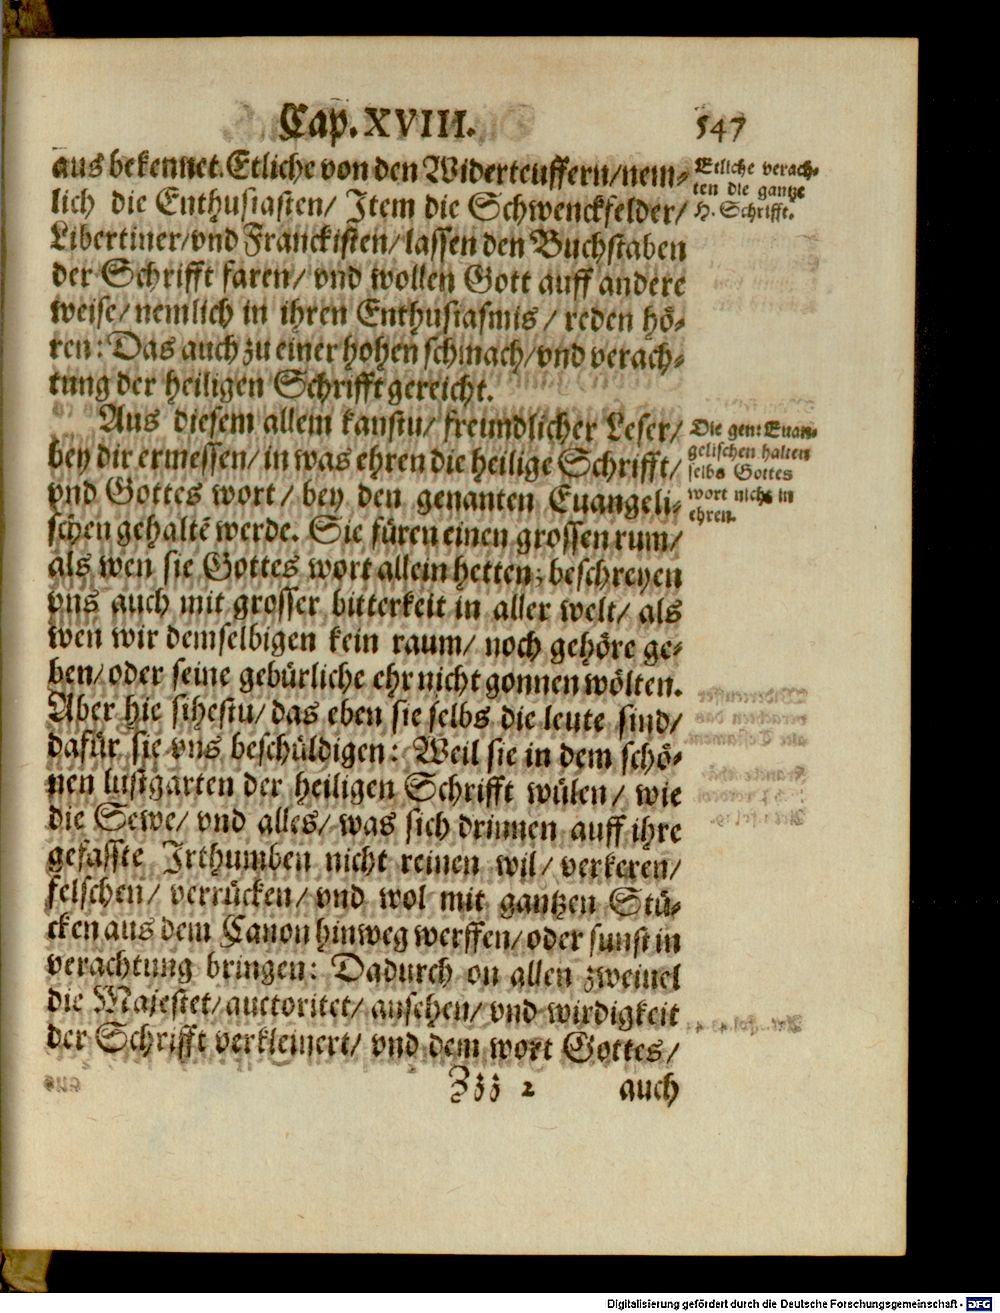 Cap. XVIII. 547
aus bekennet. Etliche von den Widerteuffern/nem-
lich die Enthusiasten/ Item die Schwenckfelder/
Libertiner/vnd Franckisten/lassen den Buchstaben
der Schrifft faren/ vnd wollen Gott auff andere
weise/nemlich in ihren Enthusiasmis/ reden hö-
ren: Das auch zu einer hohen schmach/vnd verach-
tung der heiligen Schrifft gereicht.
Etliche verach-
ten die gantze
H. Schrifft.
Aus diesem allem kanstu/ freundlicher Leser/
bey dir ermessen/ in was ehren die heilige Schrifft/
vnd Gottes wort/ bey den genanten Euangeli-
schen gehaltẽ werde. Sie füren einen grossen rum/
als wen sie Gottes wort allein hetten; beschreyen
vns auch mit grosser bitterkeit in aller welt/ als
wen wir demselbigen kein raum/ noch gehöre ge-
ben/ oder seine gebürliche ehr nicht gonnen wölten.
Aber hie sihestu/ das eben sie selbs die leute sind/
dafür sie vns beschüldigen: Weil sie in dem schö-
nen lustgarten der heiligen Schrifft wülen/ wie
die Sewe/ vnd alles/ was sich drinnen auff ihre
gefasste Irthumben nicht reinen wil/ verkeren/
felschen/ verrücken/ vnd wol mit gantzen Stü-
cken aus dem Canon hinweg werffen/ oder sunst in
verachtung bringen: Dadurch on allen zweiuel
die Majestet/ auctoritet/ ansehen/ vnd wirdigkeit
der Schrifft verkleinert/ vnd dem wort Gottes/
Die gen: Euan-
gelischen halten
selbs Gottes
wort nicht in
ehren.
Zzz 2 auch
Digitalisierung gefördert durch die Deutsche Forschungsgemeinschaft - DFG